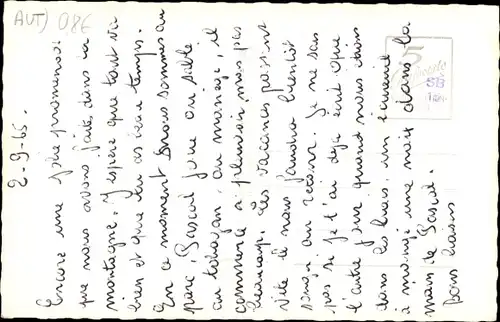 AUT) 086
2-9-65.
Encore une jolie promenade
que nous avons faite dans la
montagne. J'espère que tout va
bien et que tu as beau temps.
En ce moment nous sommes au
parc, Pascal joue au sable
au toboggan, au manège, il
commence à pleuvoir mais pas
beaucoup. Les vacances passent
vite il nous faudra bientôt
songer au retour. Je ne sais
pas si je t'ai déjà écrit que
l'autre jour quand nous étions
dans les bois, un écureuil
a mangé une noix dans la
main de Pascal.
bons baisers